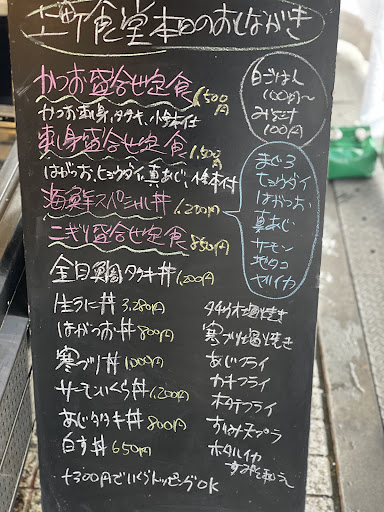 土町食堂本日のおしながき
かつお盛合せ定食 1,500円
かつお刺身、タタキ、小鉢付
刺身盛合せ定食 1,500円
はがつお、ヒョウダイ、真あじ、小鉢付
海鮮スペシャル丼 1,200円
にぎり盛合せ定食 850円
金目鯛タタキ丼 1,200円
生うに丼 3,280円
はがつお丼 800円
寒ブリ丼 1000円
サーモンいくら丼 1,200円
あじタタキ丼 800円
白す丼 650円
+300円でいくらトッピングOK
白ごはん
100円〜
みそ汁
100円
まぐろ
ヒョウダイ
はがつお
真あじ
サーモン
地タコ
ヤリイカ
タチウオ塩焼き
寒ブリ塩焼き
あじフライ
カキフライ
ホタテフライ
すりみ天プラ
ホタルイカ